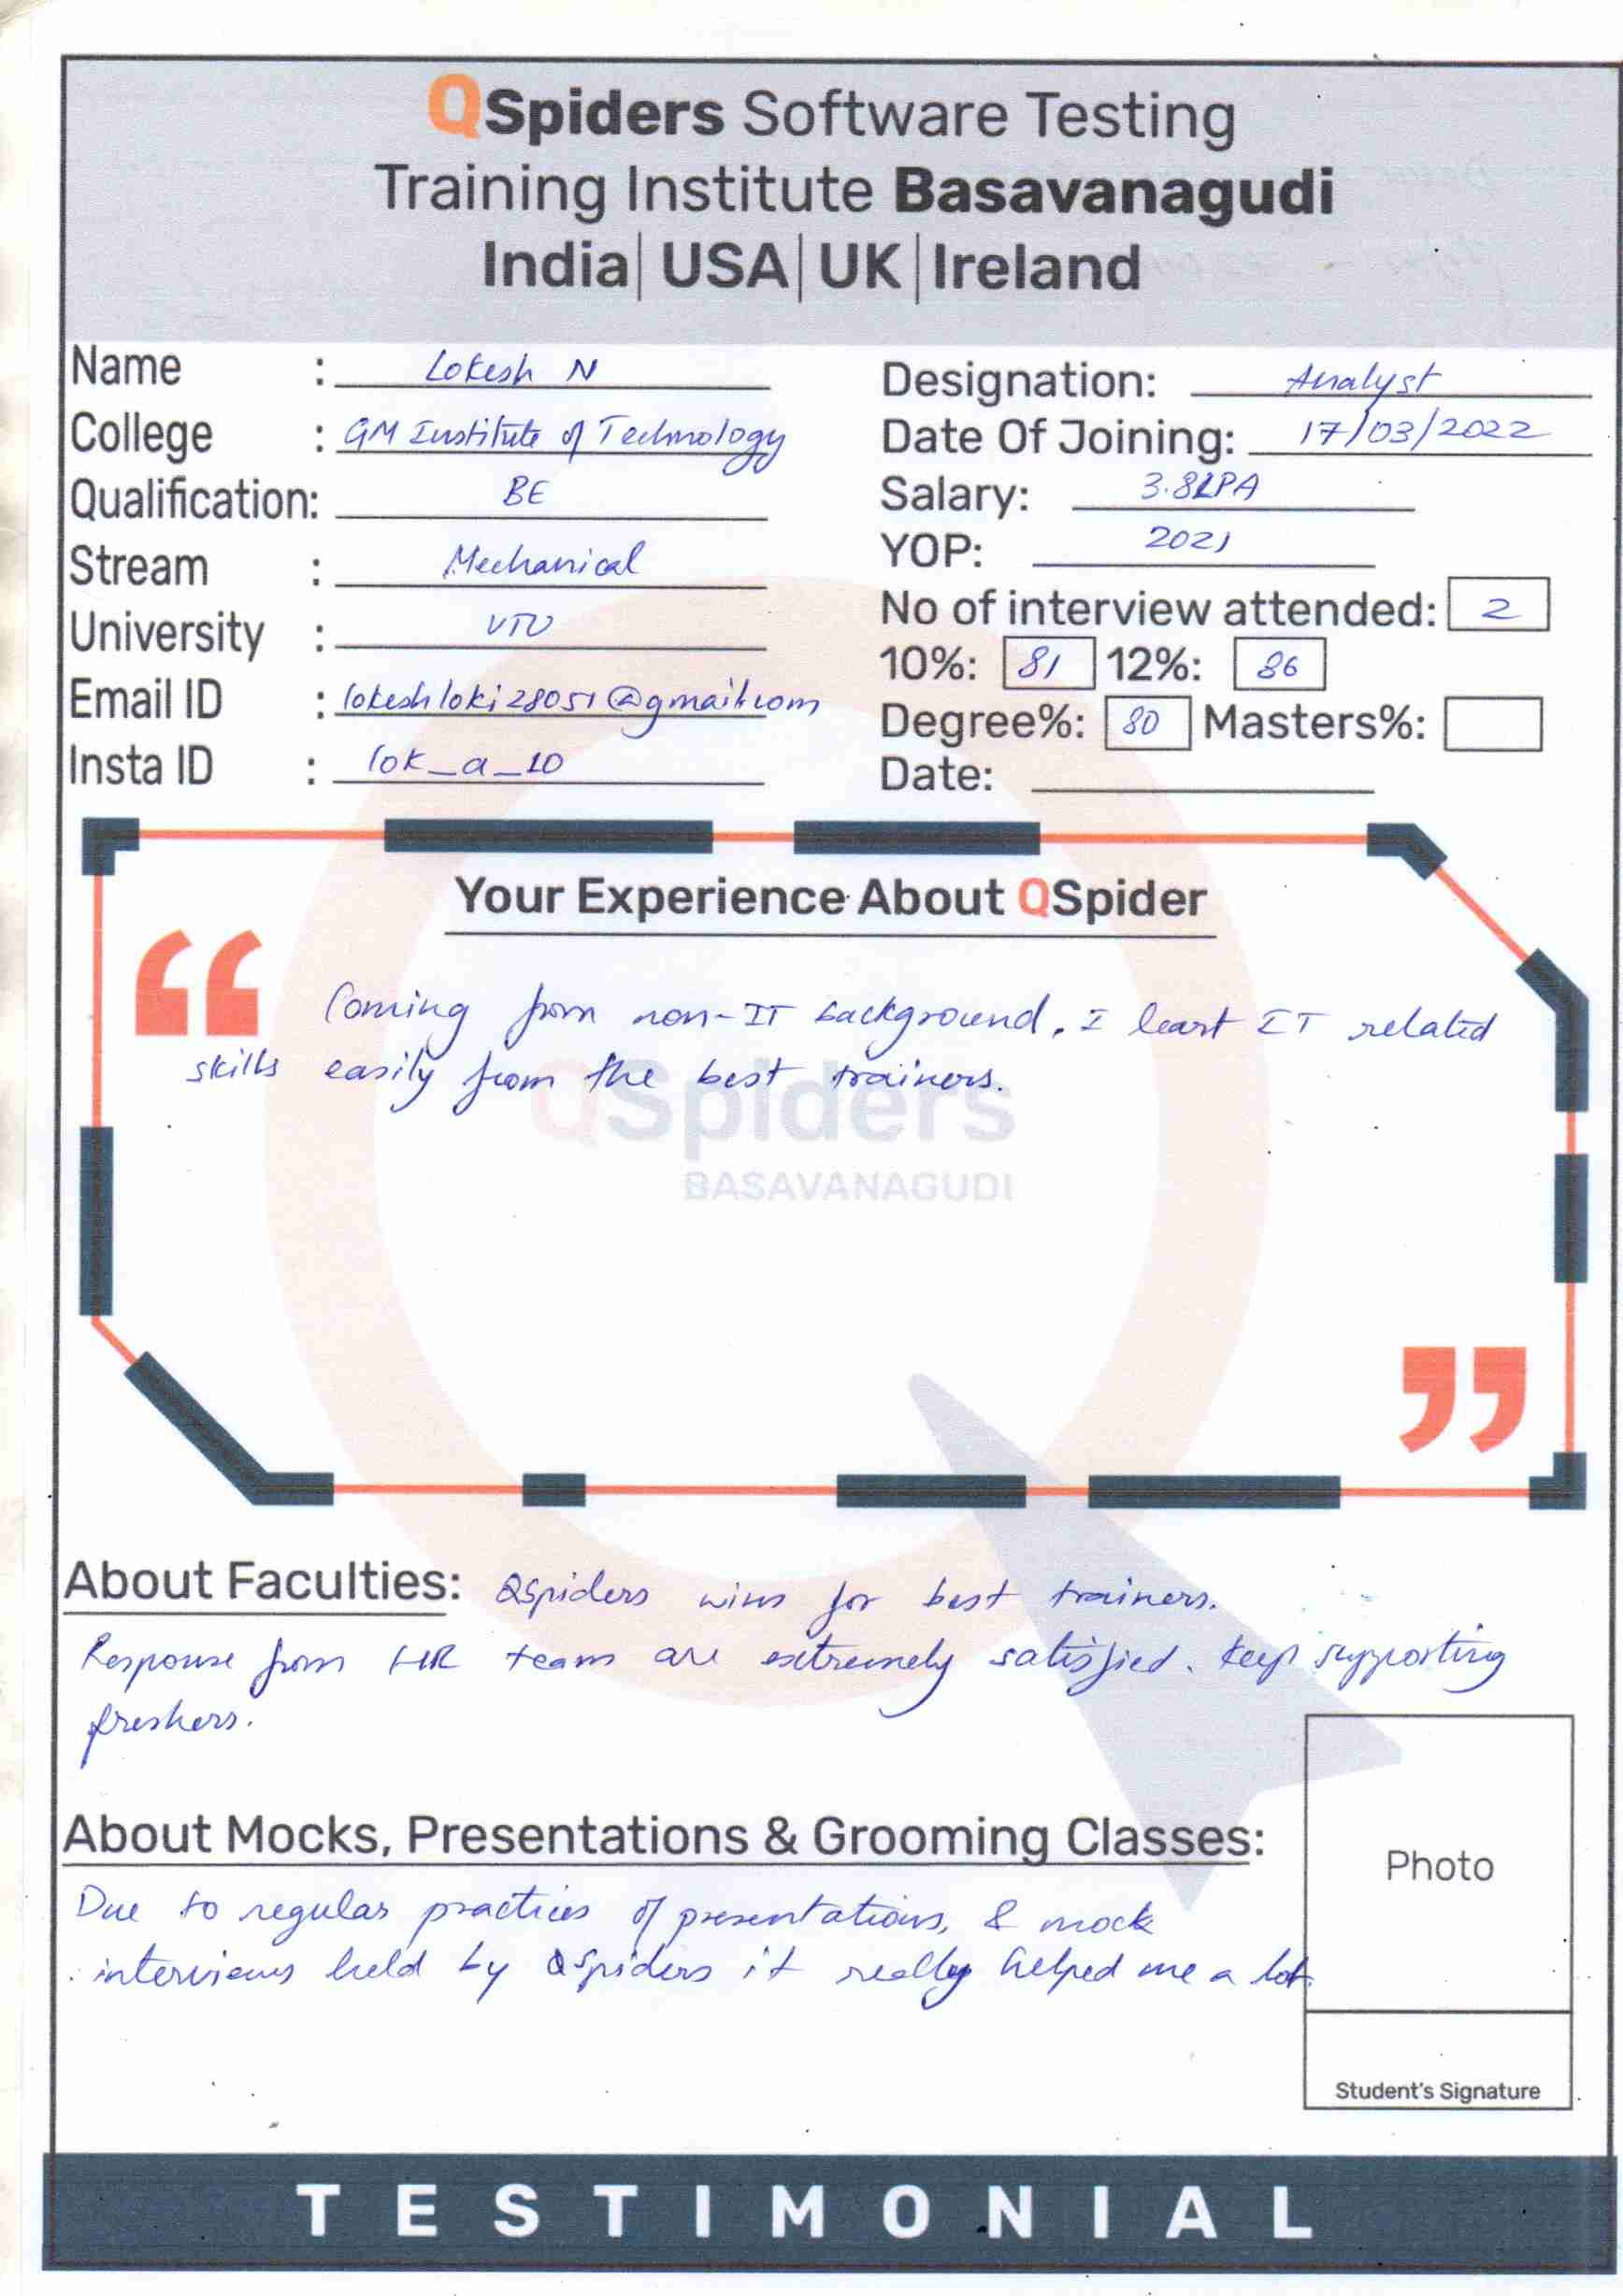 QSpiders Software Testing
Training Institute Basavanagudi
India| USA| UK| Ireland
Name : Lokesh N
College : GM Institute of Technology
Qualification: BE
Stream : Mechanical
University : VTU
Email ID : lokeshloki28051@gmail.com
Insta ID : lok_a_10
Designation: Analyst
Date Of Joining: 17/03/2022
Salary: 3.8LPA
YOP: 2021
No of interview attended: 2
10%: 81 12%: 86
Degree%: 80 Masters%:
Date:
Your Experience About QSpider
“
Coming from non-IT background, I learnt IT related
skills easily from the best trainers.
QSpiders
BASAVANAGUDI
”
About Faculties: QSpiders wins for best trainers.
Response from HR team are extremely satisfied. Keep supporting
freshers.
About Mocks, Presentations & Grooming Classes:
Due to regular practices of presentations, & mock
interviews held by QSpiders it really helped me a lot.
Photo
Student's Signature
TESTIMONIAL